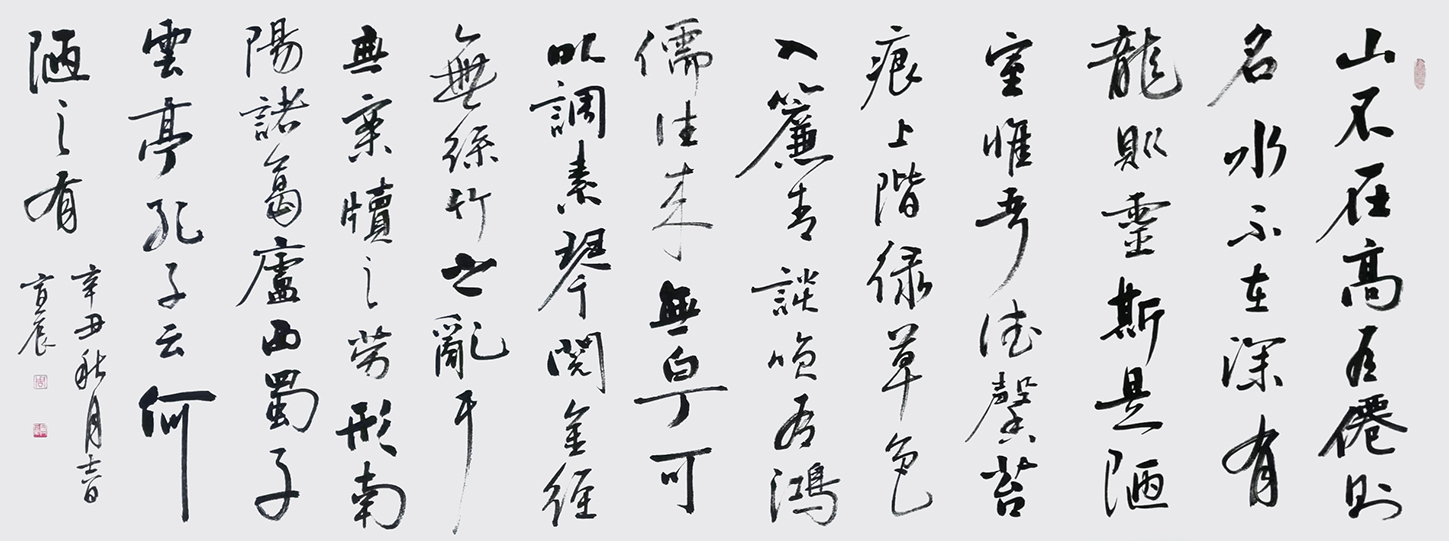 山不在高有僊則
名水不在深有
龍則靈斯是陋
室惟吾德馨苔
痕上階緑草色
入簾青談笑有鴻
儒往来無白丁可
以調素琴閲金經
無絲竹之亂耳
無案牘之勞形南
陽諸葛廬西蜀子
雲亭孔子云何
陋之有
辛丑秋月吉日